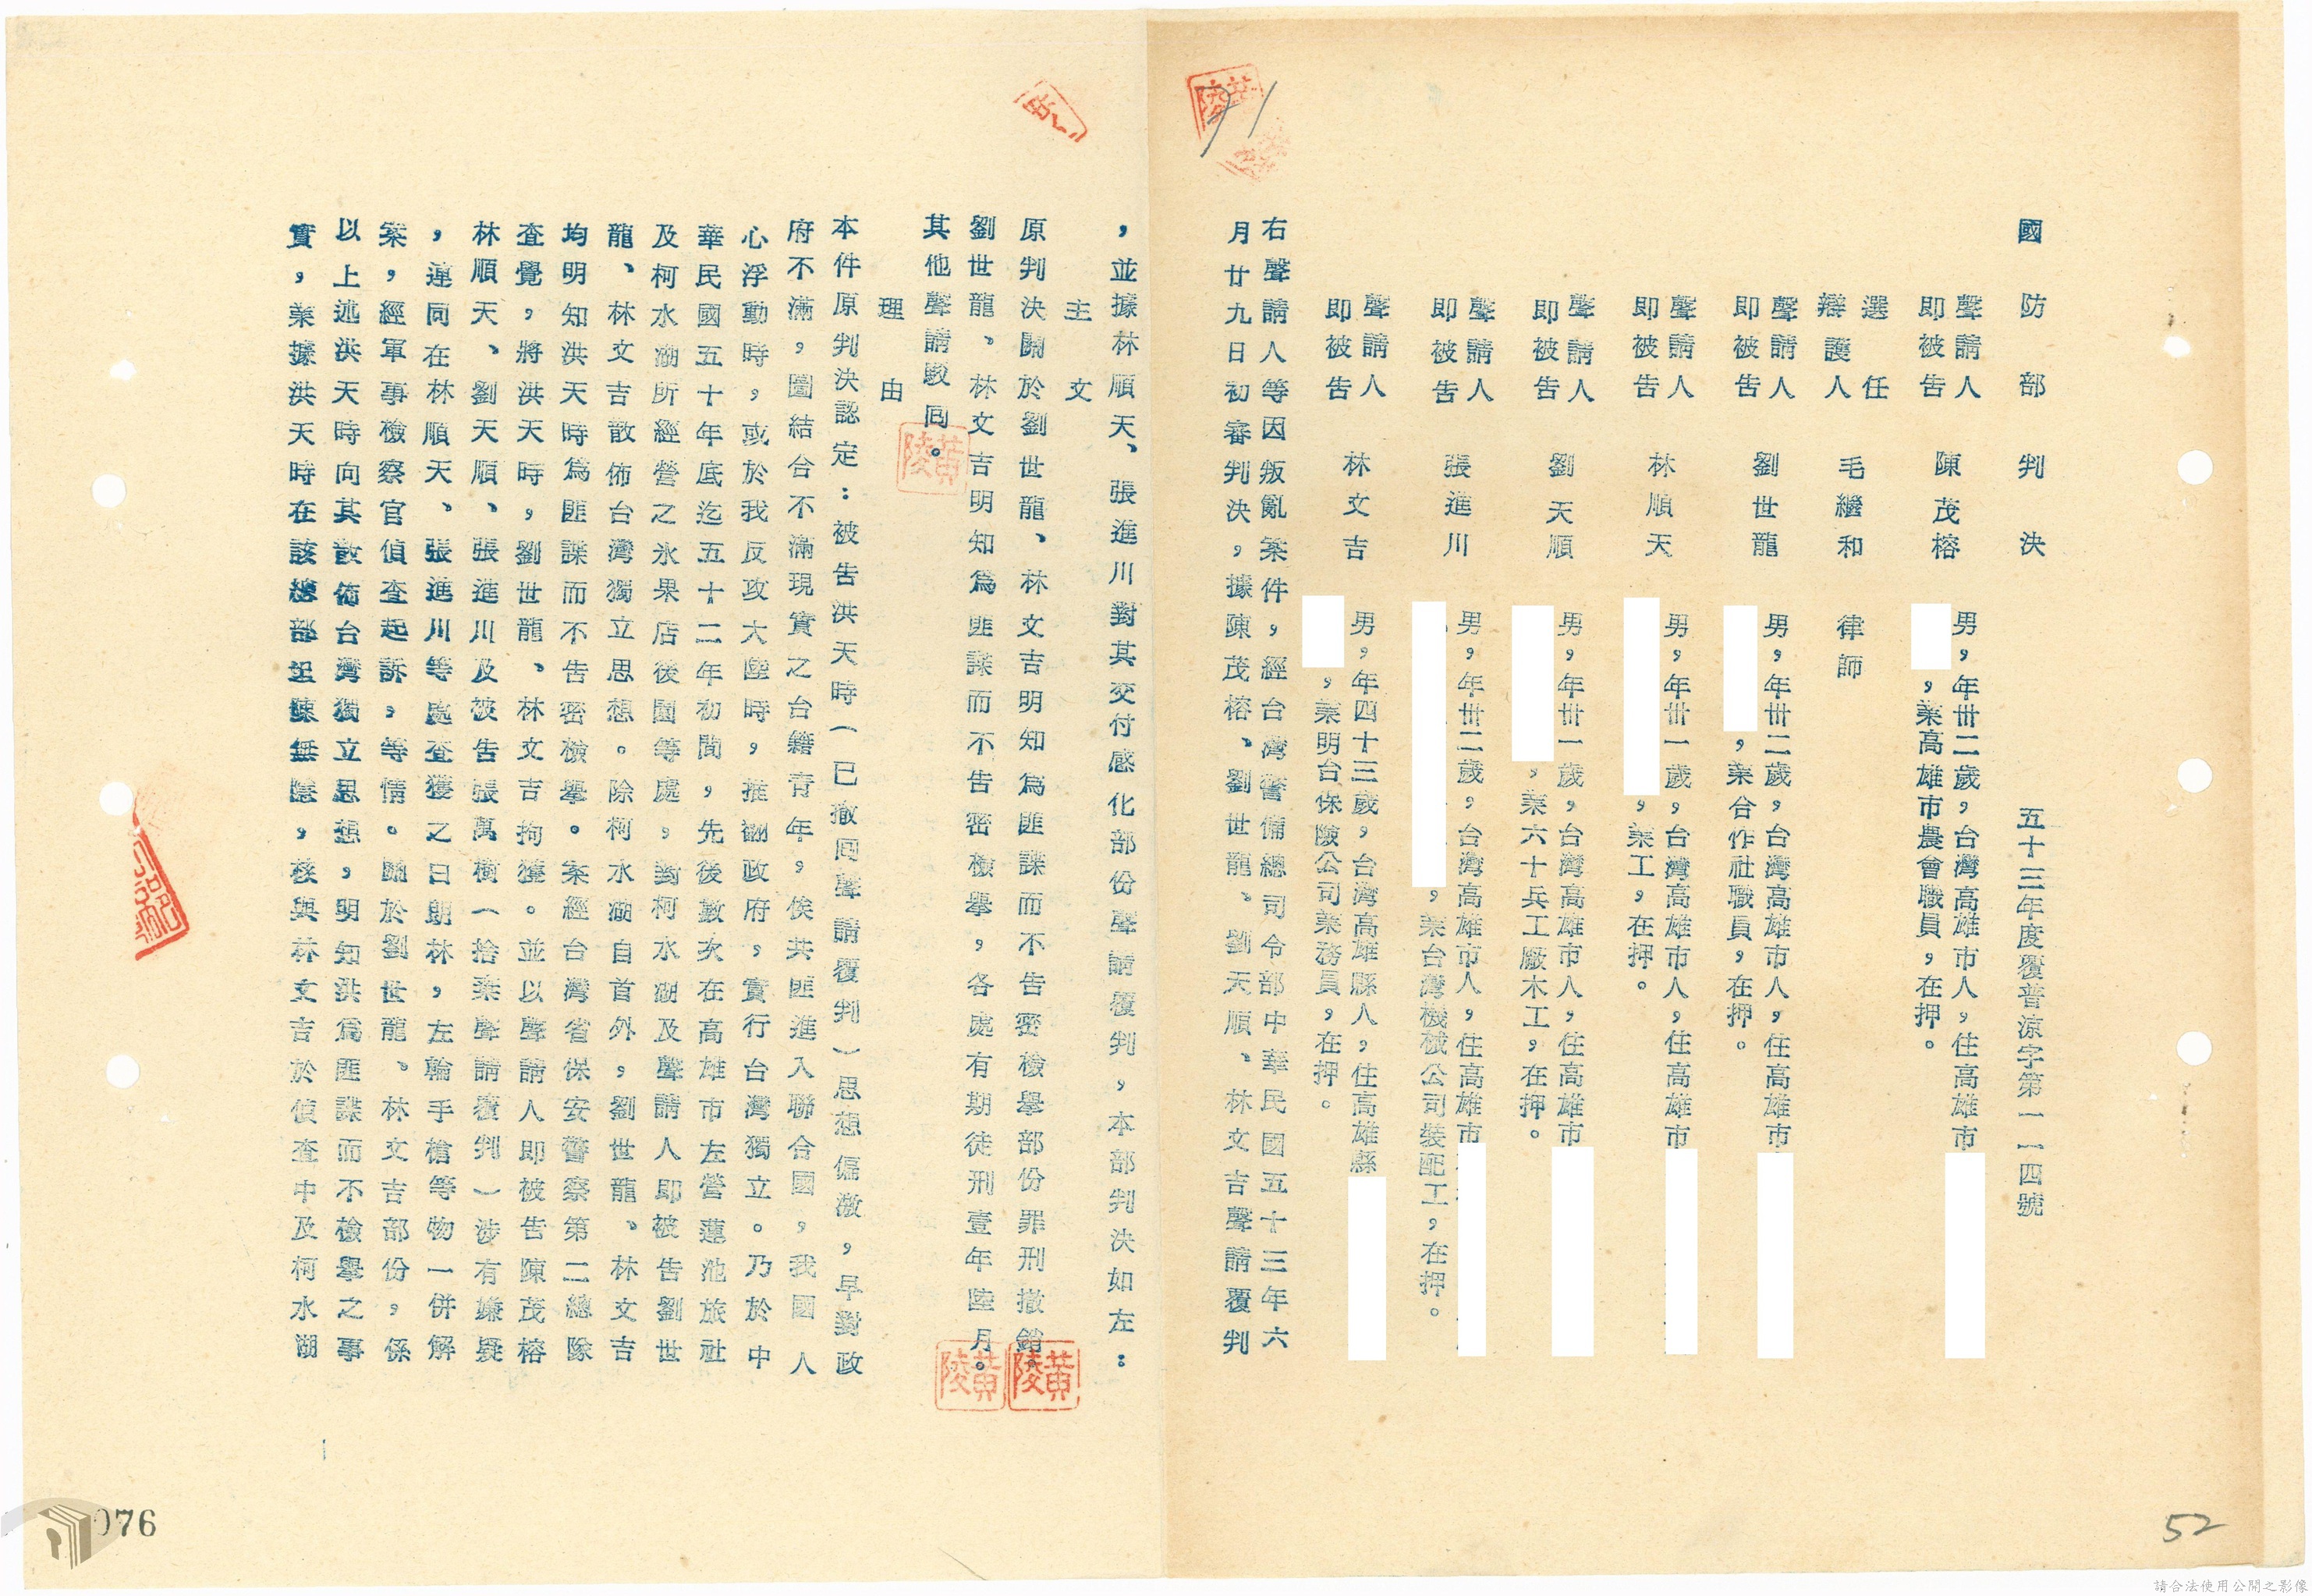 國防部判決
五十三年度覆普涼字第一一四號
聲請人
即被告
陳茂榕
男，年卅二歲，台灣高雄市人，住高雄市
，業高雄市農會職員，在押。
選任
辯護人
毛繼和
律師
聲請人
即被告
劉世龍
男，年卅二歲，台灣高雄市人，住高雄市
，業合作社職員，在押。
聲請人
即被告
林順天
男，年卅一歲，台灣高雄市人，住高雄市
，業工，在押。
聲請人
即被告
劉天順
男，年卅一歲，台灣高雄市人，住高雄市
，業六十兵工廠木工，在押。
聲請人
即被告
張進川
男，年卅二歲，台灣高雄市人，住高雄市
，業台灣機械公司裝配工，在押。
聲請人
即被告
林文吉
男，年四十三歲，台灣高雄縣人，住高雄縣
，業明台保險公司業務員，在押。
右聲請人等因叛亂案件，經台灣警備總司令部中華民國五十三年六
月廿九日初審判決，據陳茂榕、劉世龍、劉天順、林文吉聲請覆判
，並據林順天、張進川對其交付感化部份聲請覆判，本部判決如左：
主文
原判決關於劉世龍、林文吉明知為匪諜而不告密檢舉部份罪刑撤銷。
劉世龍、林文吉明知為匪諜而不告密檢舉，各處有期徒刑壹年陸月。
其他聲請駁回。
理由
本件原判決認定：被告洪天時（已撤回聲請覆判）思想偏激，早對政
府不滿，圖結合不滿現實之台籍青年，俟共匪進入聯合國，我國人
心浮動時，或於我反攻大陸時，推翻政府，實行台灣獨立。乃於中
華民國五十年底迄五十二年初間，先後數次在高雄市左營蓮池旅社
及柯水湖所經營之氷果店後園等處，對柯水湖及聲請人即被告劉世
龍、林文吉散佈台灣獨立思想。除柯水湖自首外，劉世龍、林文吉
均明知洪天時為匪諜而不告密檢舉。案經台灣省保安警察第二總隊
查覺，將洪天時，劉世龍、林文吉拘獲。並以聲請人即被告陳茂榕
林順天、劉天順、張進川及被告張萬樹（捨棄聲請覆判）涉有嫌疑
，連同在林順天、張進川等處查獲之白朗林，左輪手槍等物一併解
案，經軍事檢察官偵查起訴，等情。關於劉世龍、林文吉部份，係
以上述洪天時向其散佈台灣獨立思想，明知洪為匪諜而不檢舉之事
實，業據洪天時在該總部坦陳無隱，核與林文吉於偵查中及柯水湖
黃陵
黃陵
黃陵
黃陵
71
52
076
請合法使用公開之影像